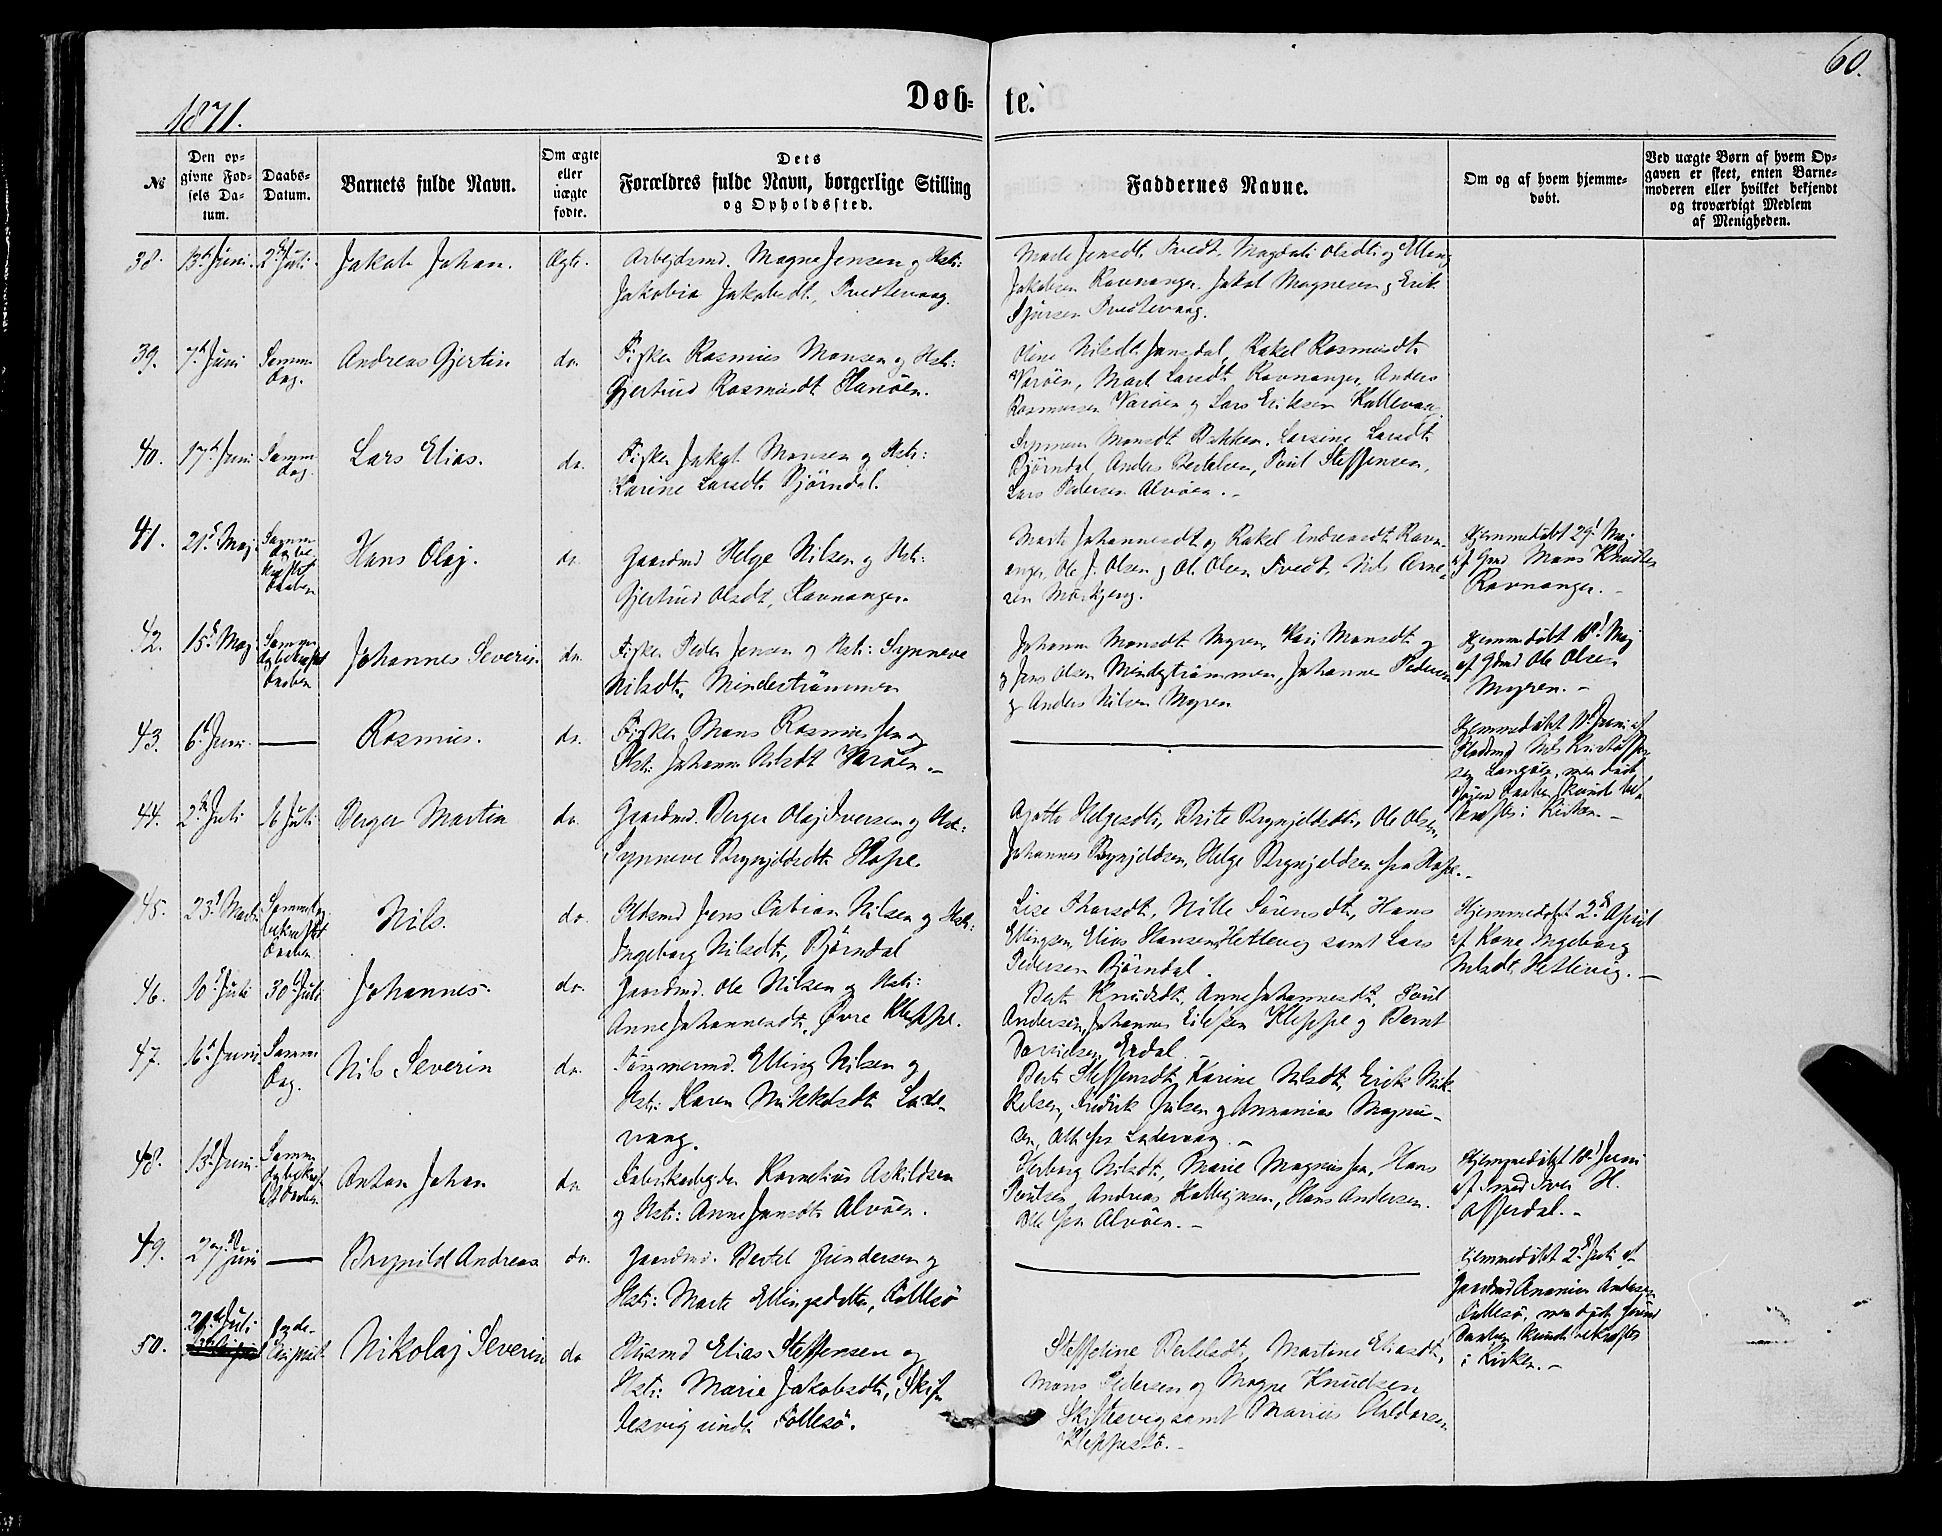 60.
1871.
Døb= te.
№
Den op=
givne Fød=
sels Da=
tum.
Daabs=
Datum.
Barnets fulde Navn.
Om ægte
eller
uægte
fødte.
Dets
Forældres fulde Navn, borgerlige Stilling
og Opholdssted.
Faddernes Navne.
Om og af hvem hjemme=
døbt.
Ved uægte Børn af hvem Op=
gaven er skeet, enten Barne=
moderen eller hvilket bekjendt
og troværdigt Medlem
af Menigheden.
38. 13de Juni. 2den Juli. Jakob Johan. Ægte.
Arbejdsmd. Magne Jensen og Hstr:
Jakobia Jakobsdtr, Tvedtevaag.
Marte Jensdtr Tvedt, Magdali Olsdtr og Elling
Jakobsen Ravnanger, Jakob Magnesen og Erik
Sjursen Tvedtevaag.
39. 7de Juni Samme
Dag. Andreas Gjertin do.
Fisker Rasmus Monsen og Hstr:
Gjertrud Rasmusdtr Hanøen.
Oline Nilsdtr Jansdal, Rakel Rasmusdtr
Varøen, Marte Larsdtr Ravnanger, Anders
Rasmussen Varøen og Lars Eriksen Kallevaag
40. 17de Juni Samme
Dag. Lars Elias. do.
Fisker Jakob Monsen og Hstr:
Karine Larsdtr Bjørndal.
Synneve Monsdtr Bakken, Larsine Larsdtr
Bjørndal, Anders Bertelsen, Poul Steffensen,
Lars Pedersen Alvøen. -
41. 21de Maj. Samme
Dag be-
kræftet
Daaben Hans Olaj. do.
Gaardmd Helge Nilsen og Hstr:
Gjertrud Olsdtr, Ravnanger.
Marte Johannesdtr og Rakel Andreasdtr Ravn-
anger, Ole J. Olsen og Ol. Olsen Tvedt, Nils Arne-
sen
Hjemmedøbt 29de Maj
af Gmd Mons Knudsen
Ravnanger. -
42. 15de Maj. Samme
Dag bekræftet
Daaben Johannes Severin. do.
Fisker Peder Jensen og Hstr: Synneve
Nilsdtr, Mindestrømmen
Johanna Monsdtr Myren, Kari Monsdtr og
og Jens Olsen Mindestrømmen, Johannes Pedersen
og Anders Nilsen Myren
Hjemmedøbt 18de Maj
af Gdmd Ole Olsen
Myren. -
43. 6de Juni. — Rasmus. do.
Fisker Mons Rasmussen og
Hstr: Johanna Nilsdtr Varøen. -
Hjemmedøbt Juni af
Nils Kristoffer-
sen Langøen, men døde
førend Daaben kunde be-
kræftes i Kirken. -
44. 2den Juli 16 Juli Berger Martin do.
Gaardmd. Berger Olaj Iversen og Hstr:
Synneve Brynjeldsdtr Hope.
Agatte Helgesdtr, Brite Brynjeldsdtr, Ole Olsen,
Johannes Brynjeldsen, Helge Brynjeldsen fra Hope. -
45. 23de Marts. Samme Dag
bekræftet
Daaben Nils. do.
Pldsmd Jens Fabian Nilsen og Hstr:
Ingeborg Nilsdtr, Bjørndal
Lise Thorsdtr, Nille Sørensdtr, Hans
Ellingsen, Elias Hansen Hetlevig samt Lars
Pedersen Bjørndal.
Hjemmedøbt 2den April
af Kone Ingeborg
Nilsdtr, Hetlevig. -
46. 10de Juli 30de Juli Johannes. do.
Gaardmd. Ole Nilsen og Hstr:
Anne Johannesdtr, Øvre Kleppe.
Berte Knudsdtr, Anne Johannesdtr, Poul
Andersen, Johannes Eilefsen Kleppe og Bernt
Davidsen Erdal.
47. 16de Juni. Samme
Dag. Nils Severin do.
Tømmermd. Elling Nilsen og
Hstr: Karen Mikkelsdtr Lade-
vaag.
Berte Steffensdtr, Karine Nilsdtr, Erik Mik-
kelsen, Fredrik Julsen og Annanias Magnu-
sen, alle fra Ladevaag. -
48. 13de Juni. Samme
Dag bekræft-
et Daaben Anton Johan do.
Fabrikarbejder Kornelius Askildsen
og Hstr: Anne Jensdtr Alvøen.
Herborg Nilsdtr, Marie Magnussen, Hans
Poulsen, Andreas Halvorsen, Hans Andersen.
Alle fra Alvøen. -
Hjemmedøbt 18de Juni
af Smed Iver H.
Offerdal. -
49. 27de Juni — Brynild Andreas. do.
Gaardmd. Bertel Gundersen og
Hstr: Marte Ellingsdatter, Follesø
Hjemmedøbt 2den Juli af
Gaardmd Ananias Andersen
Follesø, men døde førend
Daaben kunde bekræftes
i Kirken. -
50. 20de Juli 6 August Nikolaj Severin do.
Husmd Elias Steffensen og
Hstr: Marie Jakobsdtr, Skif-
tesvig under Follesø.
Steffeline Bertelsdtr, Martine Eliasdtr,
Mons Pedersen og Magne Knudsen
Skiftesvig samt Marius Haldorsen
Kleppestø. -